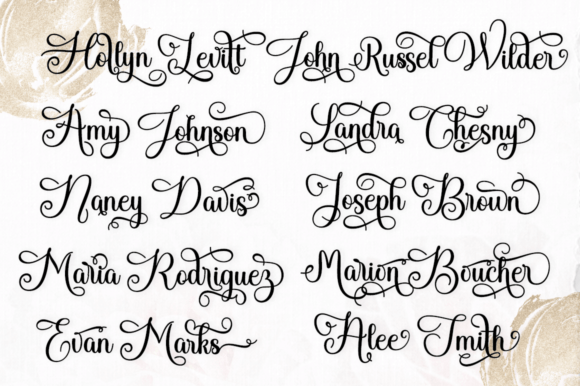 Hollyn Levitt
John Russel Wilder
Amy Johnson
Landra Chesny
Nancy Davis
Joseph Brown
Maria Rodriguez
Marion Boucher
Evan Marks
Alec Smith